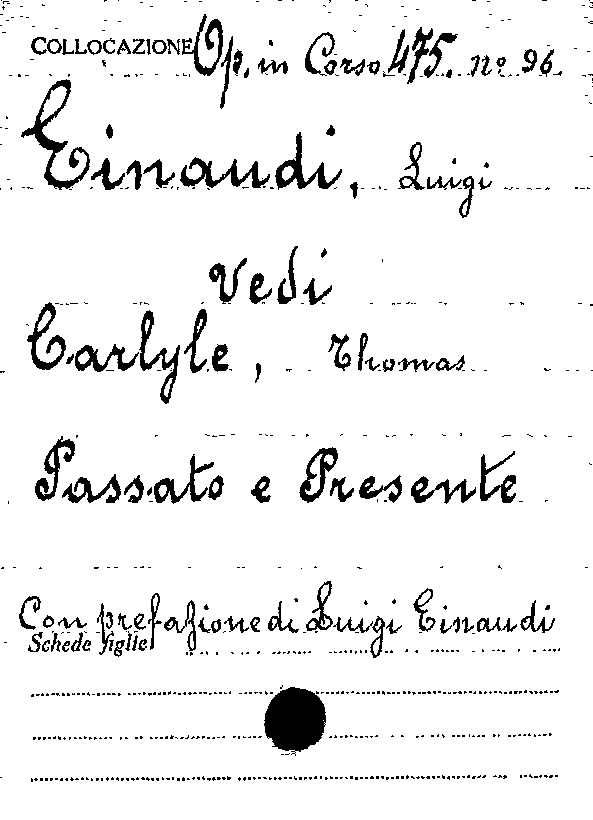 COLLOCAZIONE Op. in Corso 475. nº 96.
Einaudi, Luigi
Vedi
Carlyle, Thomas
Passato e Presente
Con prefazione di Luigi Einaudi
Schede figlie